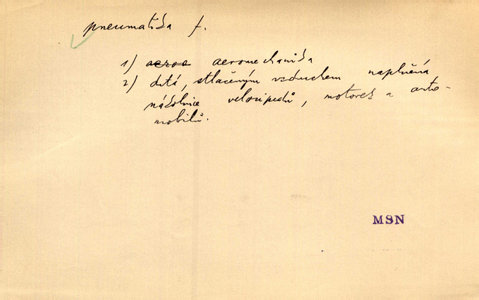 pneumatika f.
1) aeros aeromechanika
2) dutá, stlačeným vzduchem naplněná
nákolnice velocipedů, motorek a auto-
mobilů.
MSN